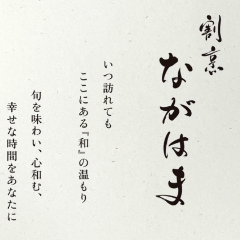 割烹
ながはま
いつ訪れても
ここにある『和』の温もり
旬を味わい、心和む、
幸せな時間をあなたに